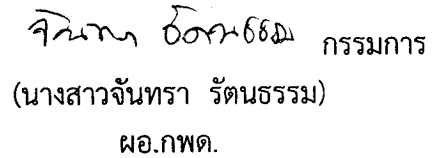 จันทรา รัตนธรรม กรรมการ
(นางสาวจันทรา รัตนธรรม)
ผอ.กพด.